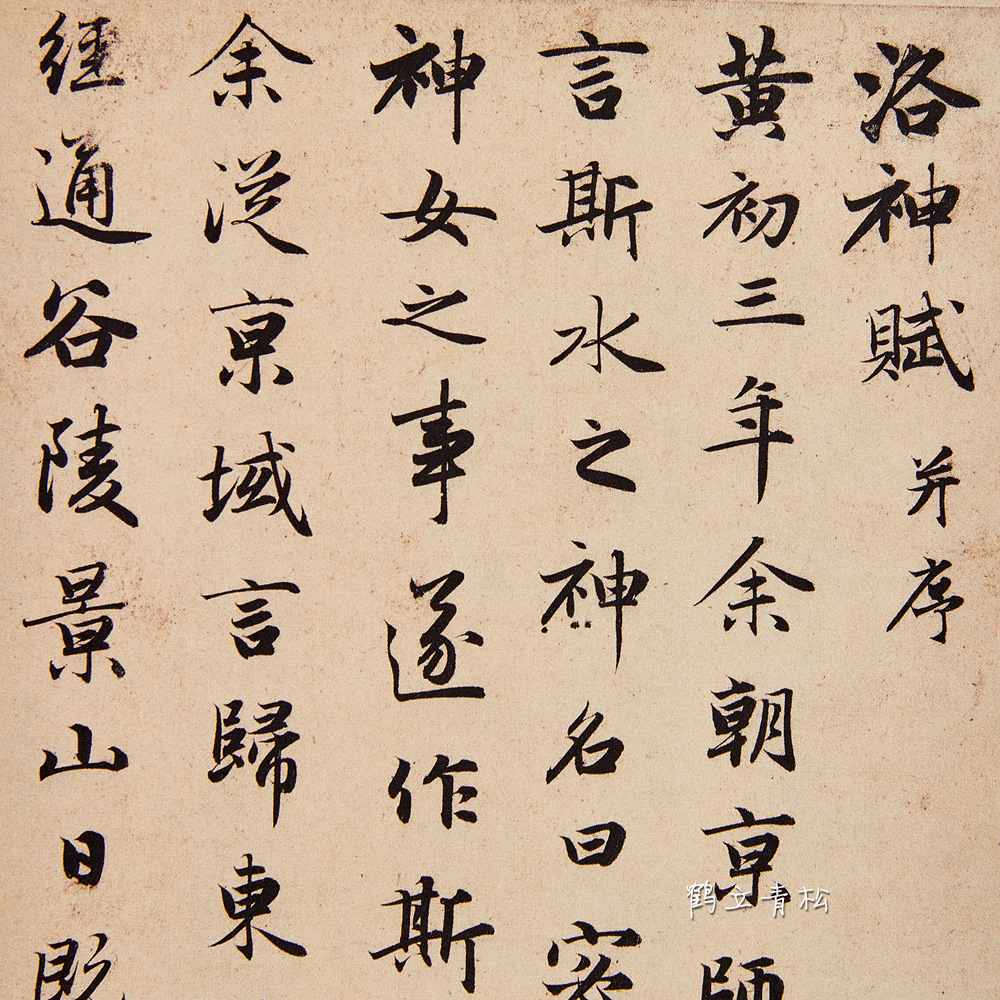 洛神賦 并序
黄初三年余朝京師
言斯水之神名曰宓
神女之事遂作斯
余従京域言歸東
經通谷陵景山日既
鹤立青松